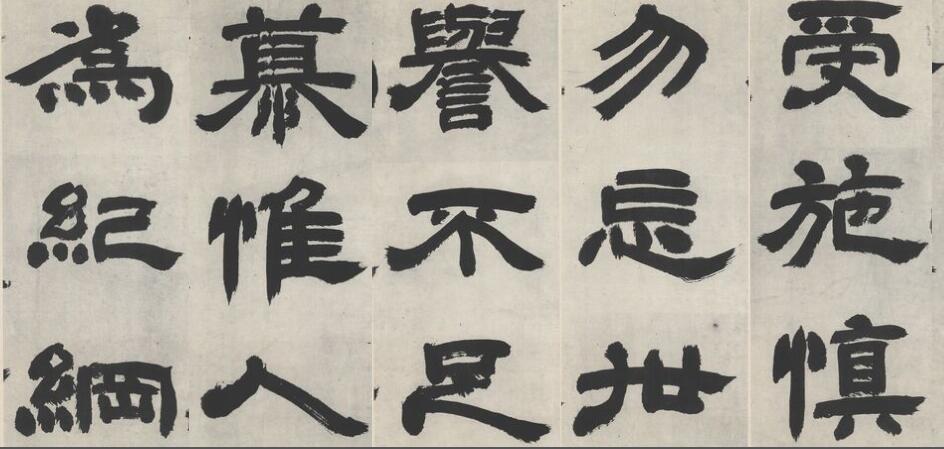 受施慎
勿忘世
譽不足
慕惟人
為紀綱